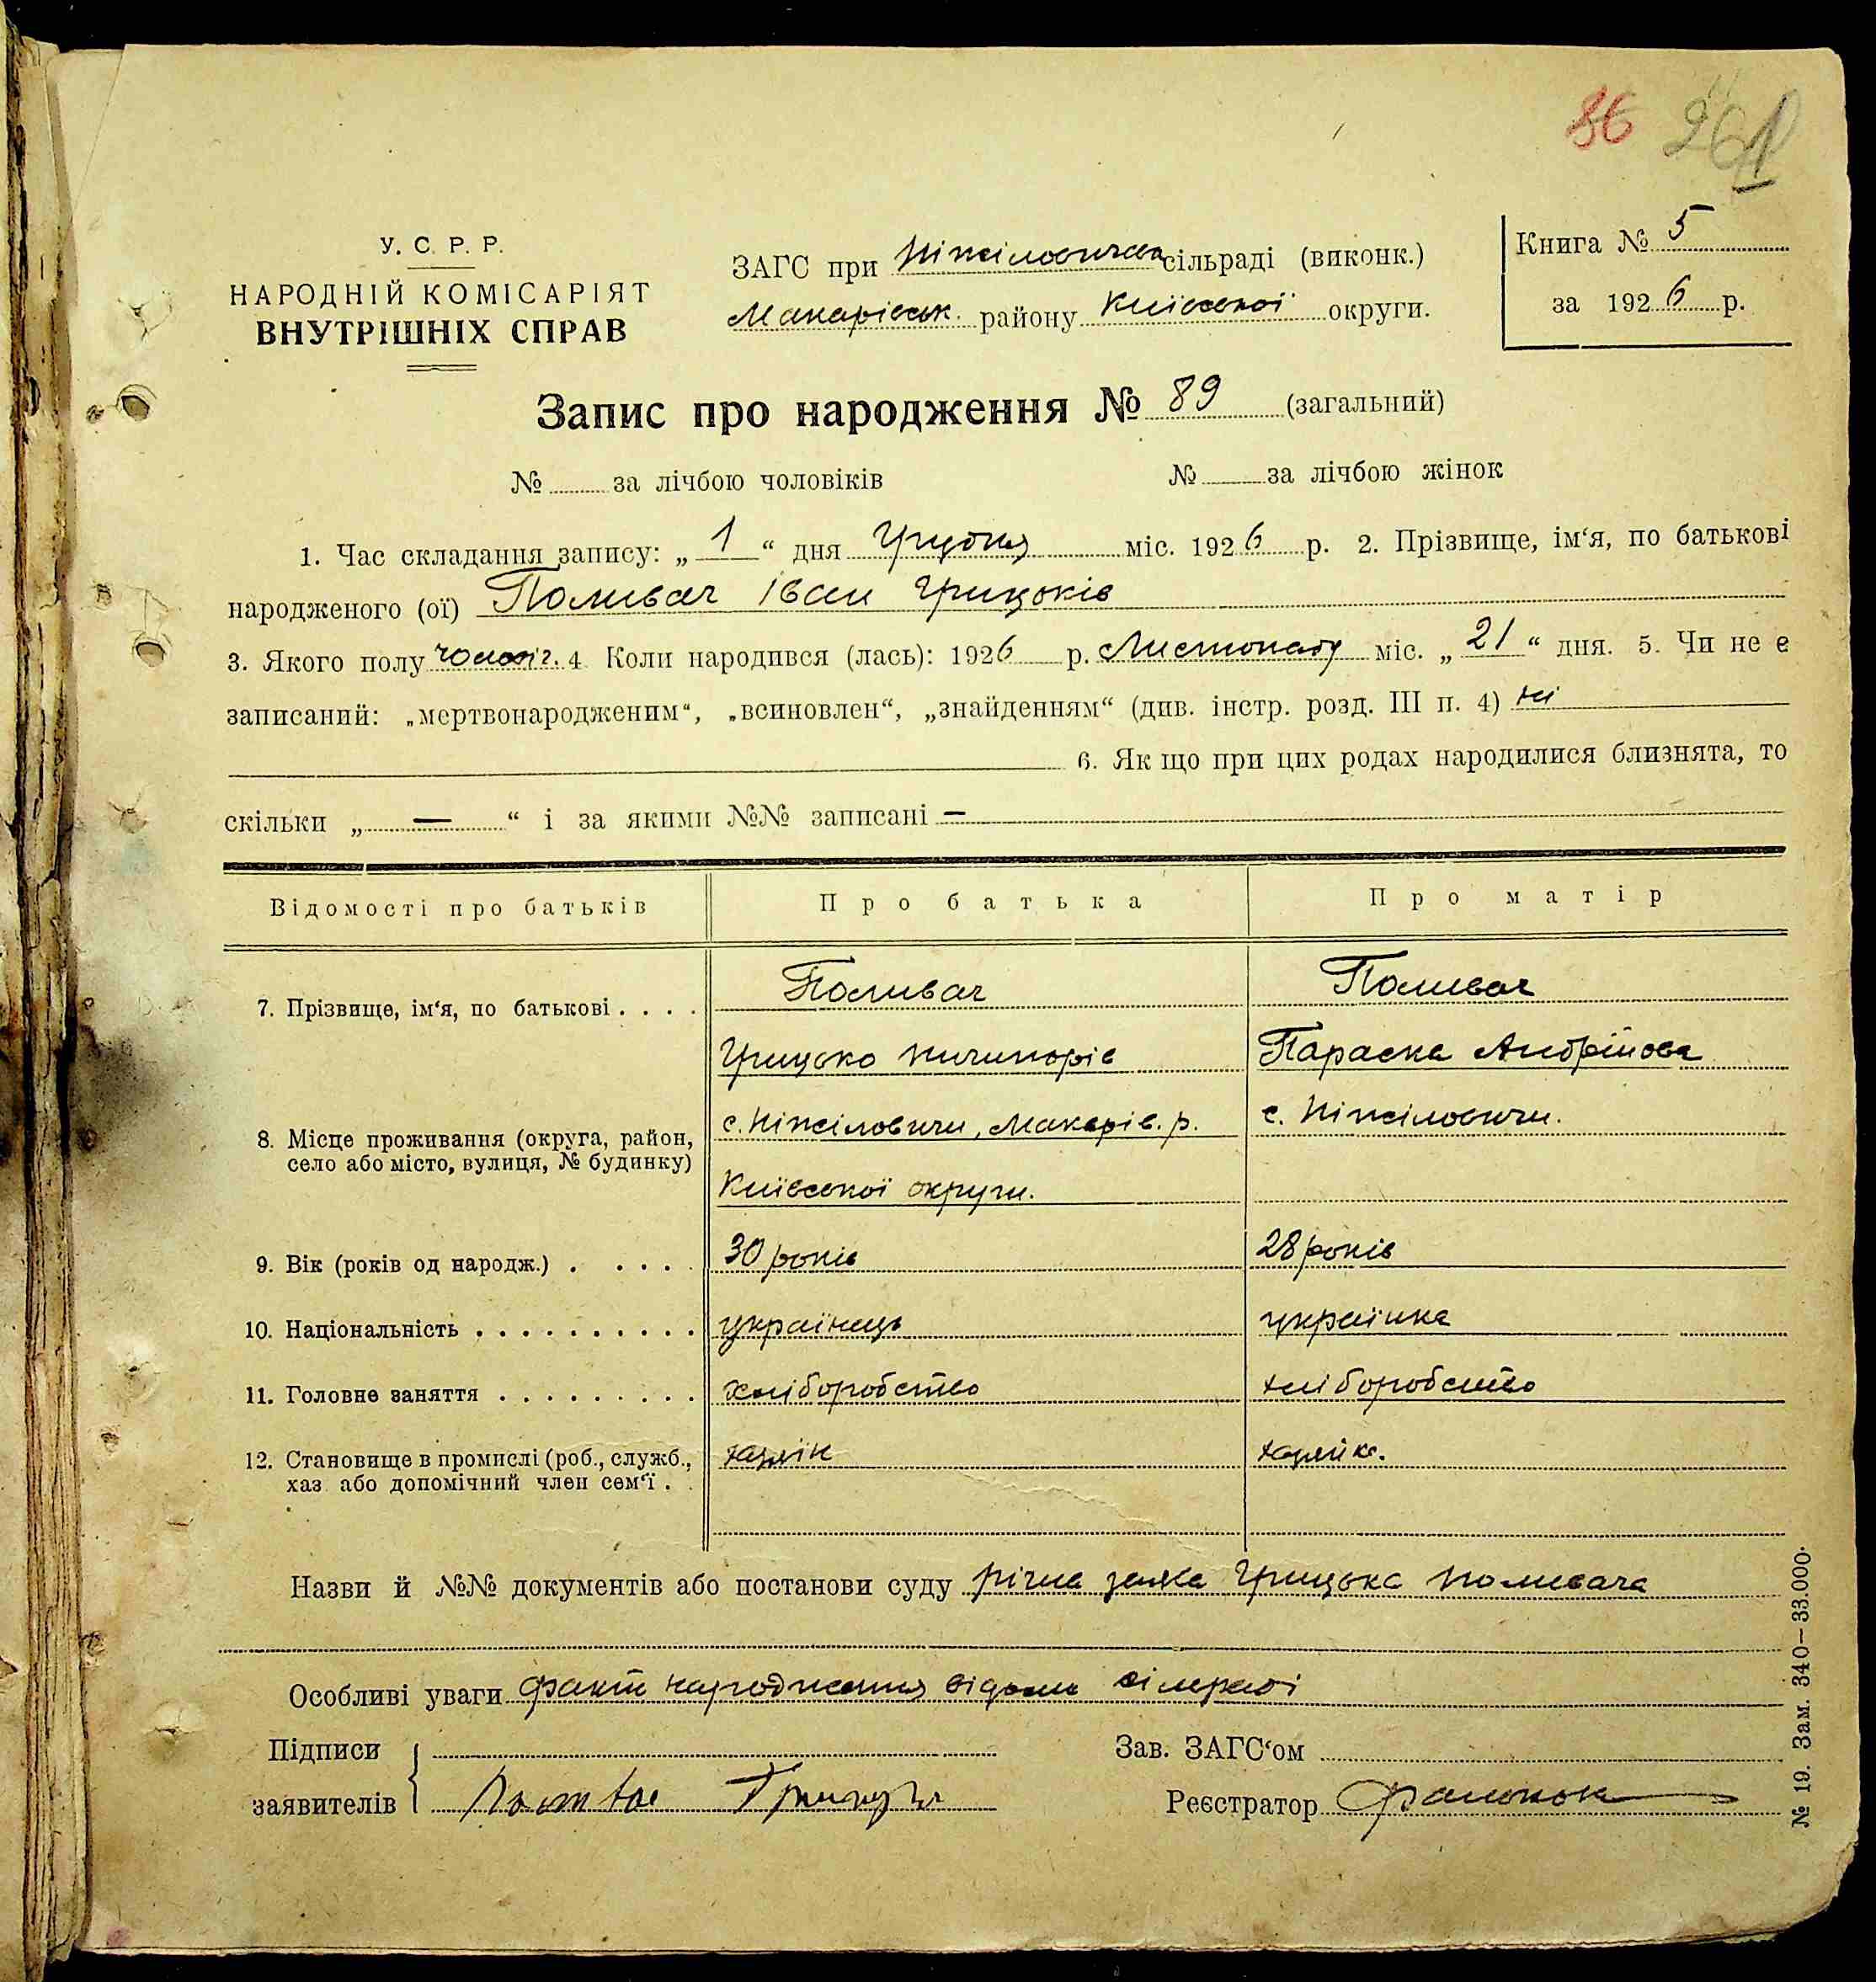 86 261
У. С. Р. Р.
НАРОДНІЙ КОМІСАРІЯТ
ВНУТРІШНІХ СПРАВ
ЗАГС при Ніжиловичськ сільраді (виконк.)
Макарівськ. району Київської округи.
Книга № 5
за 1926 р.
Запис про народження № 89 (загальний)
№ за лічбою чоловіків № за лічбою жінок
1. Час складання запису: „ 1 “ дня Грудня міс. 1926 р. 2. Прізвище, ім‘я, по батькові
народженого (ої) Поливач Іван Грицьків
3. Якого полу чоловіч. 4 Коли народився (лась): 1926 р. Листопаду міс. „ 21 “ дня. 5. Чи не є
записаний: „мертвонародженим“, „всиновлен“, „знайденням“ (див. інстр. розд. III п. 4) ні
6. Як що при цих родах народилися близнята, то
скільки „ — “ і за якими №№ записані —
Відомості про батьків Про батька Про матір
7. Прізвище, ім‘я, по батькові . . . . Поливач Поливач
Грицько Ничипорів Параска Андрійова
8. Місце проживання (округа, район, с. Ніжіловичи, Макарів. р. с. Ніжіловичи.
село або місто, вулиця, № будинку)
Київської округи.
9. Вік (років од народж.) . . . . . 30 років 28 років
10. Національність . . . . . . . . . . українець українка
11. Головне заняття . . . . . . . . . хліборобство хліборобство
12. Становище в промислі (роб., служб., хазяїн хазяйка.
хаз або допомічний член сем‘ї . .
Назви й №№ документів або постанови суду річна заява Грицька Поливача
Особливі уваги факт народження відомий сільраді
Підписи Зав. ЗАГС‘ом
заявителів Реєстратор
№ 19. Зам. 340—33.000.